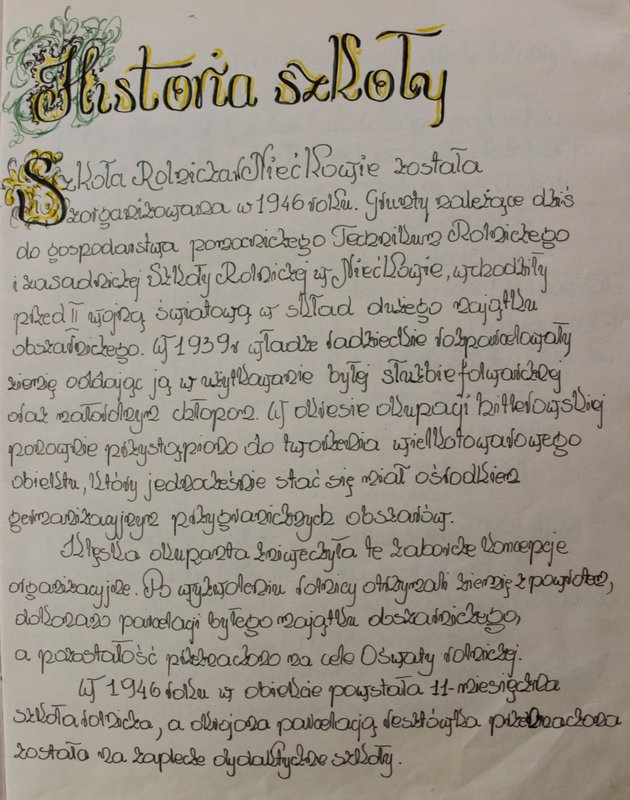 Historia szkoły
Szkoła Rolnicza w Niećkowie została
zorganizowana w 1946 roku. Grunty należące dziś
do gospodarstwa pomocniczego Technikum Rolniczego
i zasadniczej Szkoły Rolniczej w Niećkowie, wchodziły
przed II wojną światową w skład dużego majątku
obszarniczego. W 1939r władze radzieckie rozparcelowały
ziemię oddając ją w użytkowanie byłej służbie folwarcznej
oraz małorolnym chłopom. W okresie okupacji hitlerowskiej
ponownie przystąpiono do tworzenia wielkotowarowego
obiektu, który jednocześnie stać się miał ośrodkiem
germanizacyjnym przygranicznych obszarów.
Klęska okupanta zniweczyła te zaborcze koncepcje
organizacyjne. Po wyzwoleniu rolnicy otrzymali ziemię z powrotem,
dokonano parcelacji byłego majątku obszarniczego,
a pozostałość przeznaczono na cele Oświaty rolniczej.
W 1946 roku w obiekcie powstała 11-miesięczna
szkoła rolnicza, a okrojona parcelacją resztówka przeznaczona
została na zaplecze dydaktyczne szkoły.